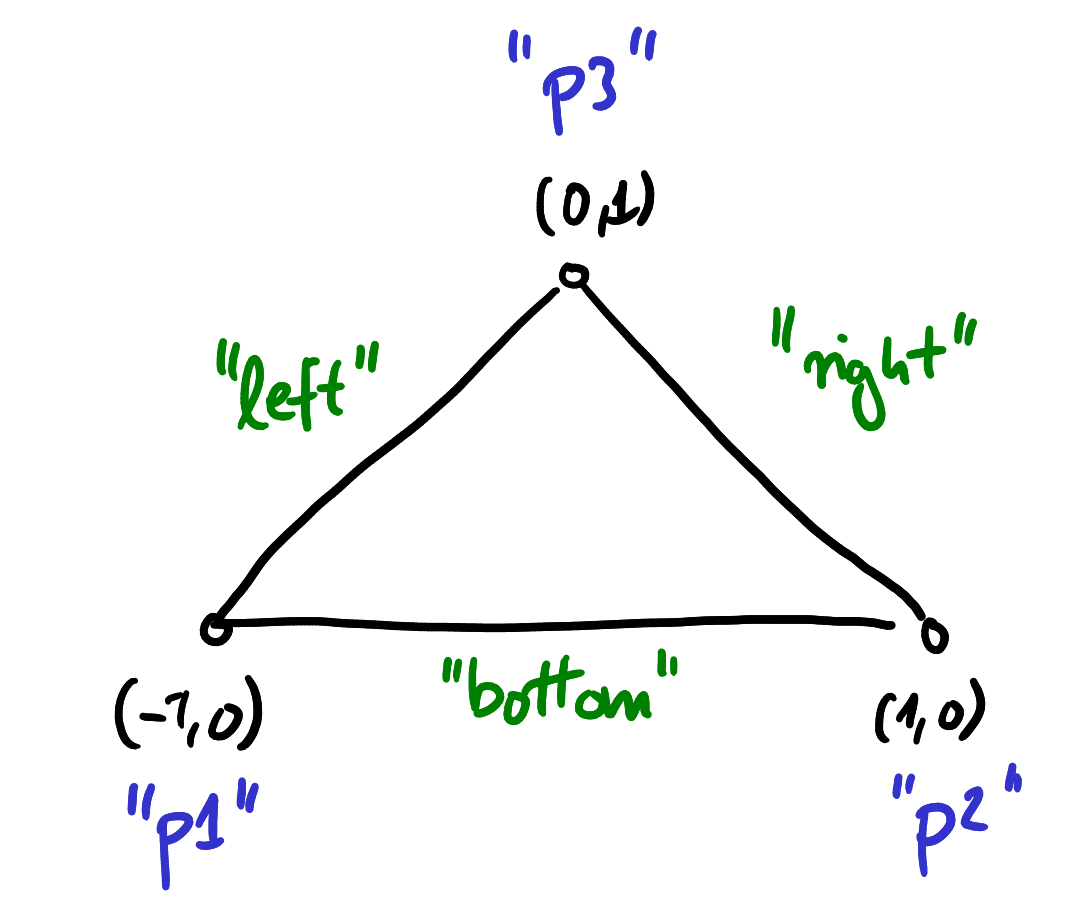 "p3"
(0,1)
"left"
"right"
"bottom"
(-1,0)
(1,0)
"p1"
"p2"